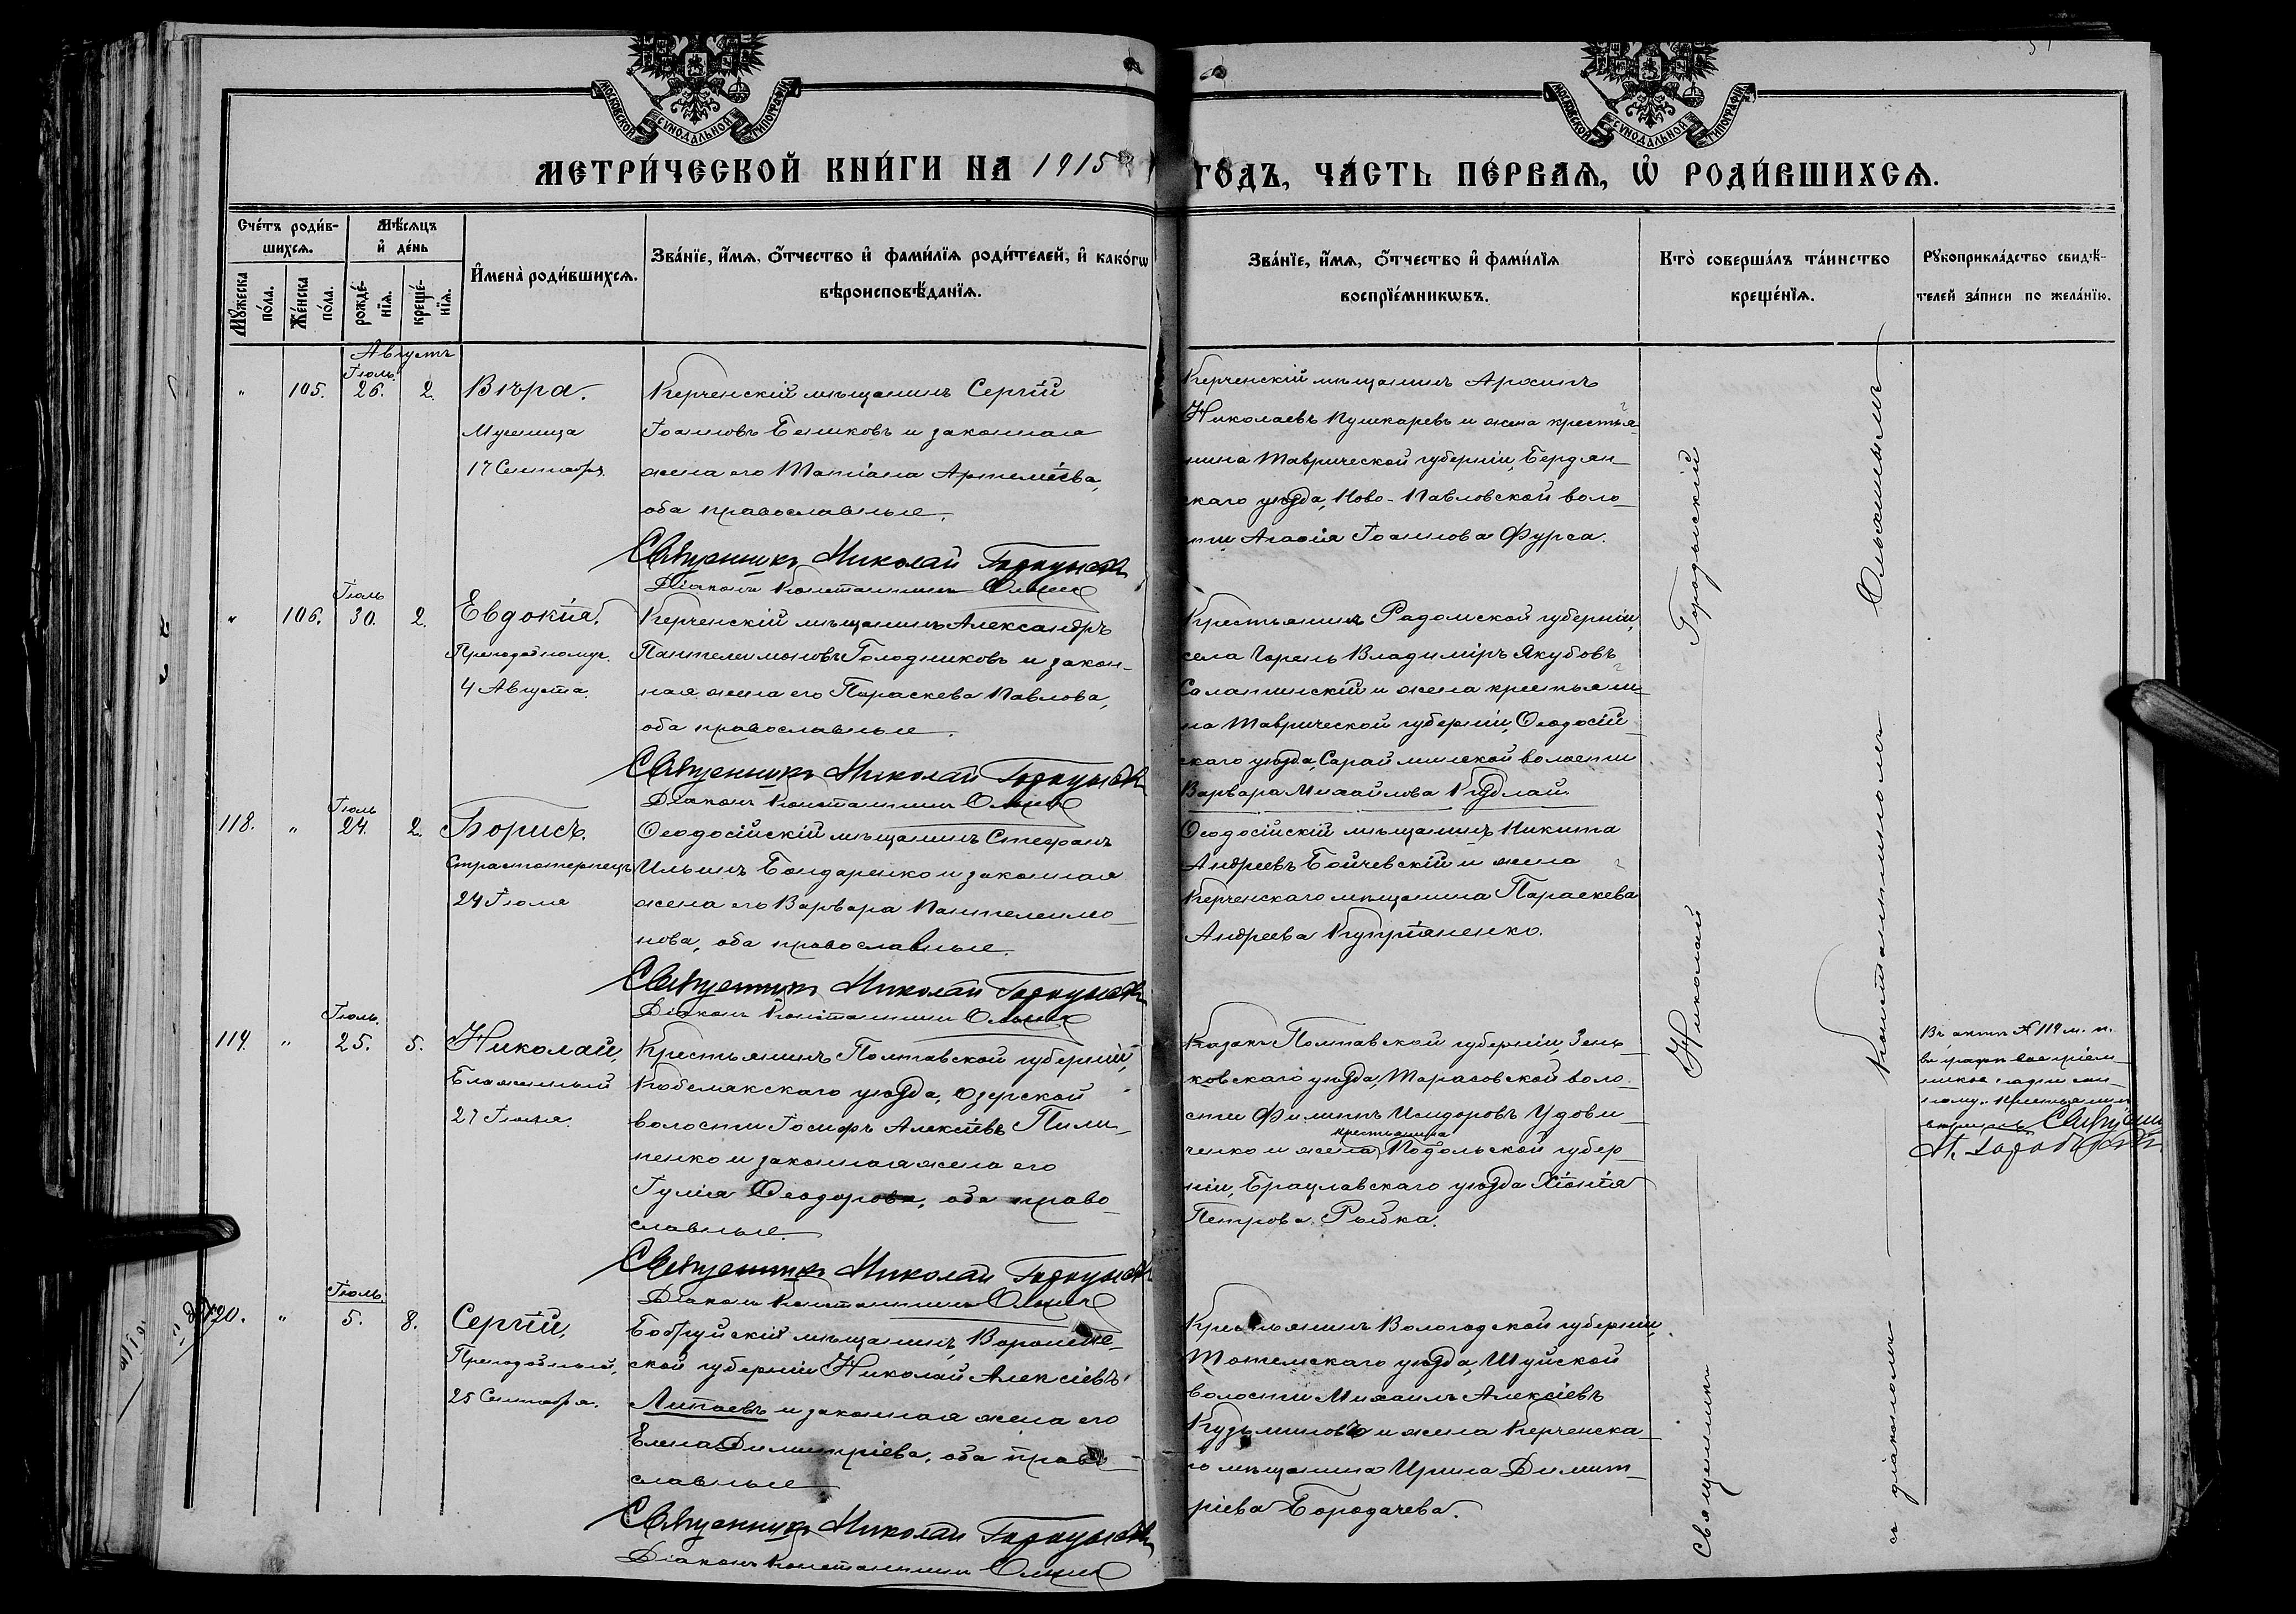 МОСКОВСКОЙ СѴНОДАЛЬНОЙ ТИПОГРАФІИ
МОСКОВСКОЙ СѴНОДАЛЬНОЙ ТИПОГРАФІИ
МЕТРИ́ЧЕСКОЙ КНИ́ГИ НА 1915
ГО́ДЪ, ЧА́СТЬ ПЕ́РВАѦ, Ѡ҆ РОДИ́ВШИХСѦ.
Сче́тъ роди́в-
шихсѧ.
Мꙋ́жеска
по́ла.
Же́нска
по́ла.
Мѣ́сѧцъ
и҆ де́нь
рожде́-
нїѧ.
креще́-
нїѧ.
И҆мена̀ роди́вшихсѧ.
Зва́нїе, и҆́мѧ, ѻ҆́тчество и҆ фами́лїѧ роди́телей, и҆ како́гѡ
вѣроисповѣ́данїѧ.
Зва́нїе, и҆́мѧ, ѻ҆́тчество и҆ фами́лїѧ
воспрїе́мникѡвъ.
Кто̀ соверша́лъ та́инство
креще́нїѧ.
Рꙋкоприкла́дство свидѣ́-
телей за́писи по жела́нїю.
Августъ
Іюль.
" 105. 26. 2.
Вѣра.
Мученица
17 Сентября.
Керченскій мѣщанинъ Сергій
Іоанновъ Беликовъ и законная
жена его Татіана Артеміева,
оба православные.
Священникъ Николай Городынскій
Діаконъ Константинъ
Керченскій мѣщанинъ
Николаевъ Пушкаревъ и жена крестья-
нина Таврической губерніи, Бердян-
скаго уѣзда, Ново-Павловской воло-
сти Агаѳія Іоаннова Фурса.
Іюль
" 106. 30. 2.
Евдокія.
Преподобномуч.
4 Августа.
Керченскій мѣщанинъ Александръ
Пантелеимоновъ Голодниковъ и закон-
ная жена его Параскева Павлова,
оба православные.
Священникъ Николай Городынскій
Діаконъ Константинъ
Крестьянинъ Радомской губерніи,
села Горень Владиміръ Якубовъ
и жена крестьяни-
на Таврической губерніи, Ѳеодосій-
скаго уѣзда, Сарайминской волости
Варвара Михайлова Кудлай.
Іюль
118. " 24. 2.
Борисъ.
Страстотерпецъ
24 Іюля
Ѳеодосійскій мѣщанинъ Стефанъ
Ильинъ Бондаренко и законная
жена его Варвара Пантелеимо-
нова, оба православные.
Священникъ Николай Городынскій
Діаконъ Константинъ
Ѳеодосійскій мѣщанинъ Никита
Андреевъ Бойчевскій и жена
Керченскаго мѣщанина Параскева
Андреева Купріяненко.
Іюль.
119. " 25. 5.
Николай,
Блаженный
27 Іюля.
Крестьянинъ Полтавской губерніи,
Кобелякскаго уѣзда, Озерской
волости Іосифъ Алексіевъ Пили-
пенко и законная жена его
Іулія Ѳеодорова, оба право-
славные.
Священникъ Николай Городынскій
Діаконъ Константинъ
Козакъ Полтавской губерніи, Зень-
ковскаго уѣзда, Тарасовской воло-
сти Филиппъ Исидоровъ Удови-
крестьянина
ченко и жена Подольской губер-
ніи, Брацлавскаго уѣзда Хіонія
Петрова Рыбка.
Въ актѣ № 119 м. п.
въ графѣ воспріем-
Іюль.
120. " 5. 8.
Сергій,
Преподобный,
25 Сентября.
Бобруйскій мѣщанинъ, Вороне-
ской губерніи Николай Алексіевъ
Литаевъ и законная жена его
Елена Димитріева, оба право-
славные
Священникъ Николай Городынскій
Діаконъ Константинъ
Крестьянинъ Вологодской губерніи,
Тотемскаго уѣзда, Шуйской
волости Михаилъ Алексіевъ
Кузьминовъ и жена Керченска-
го мѣщанина Ирина Димит-
ріева Бородачева.
Священникъ Николай Городынскій
съ діакономъ Константиномъ